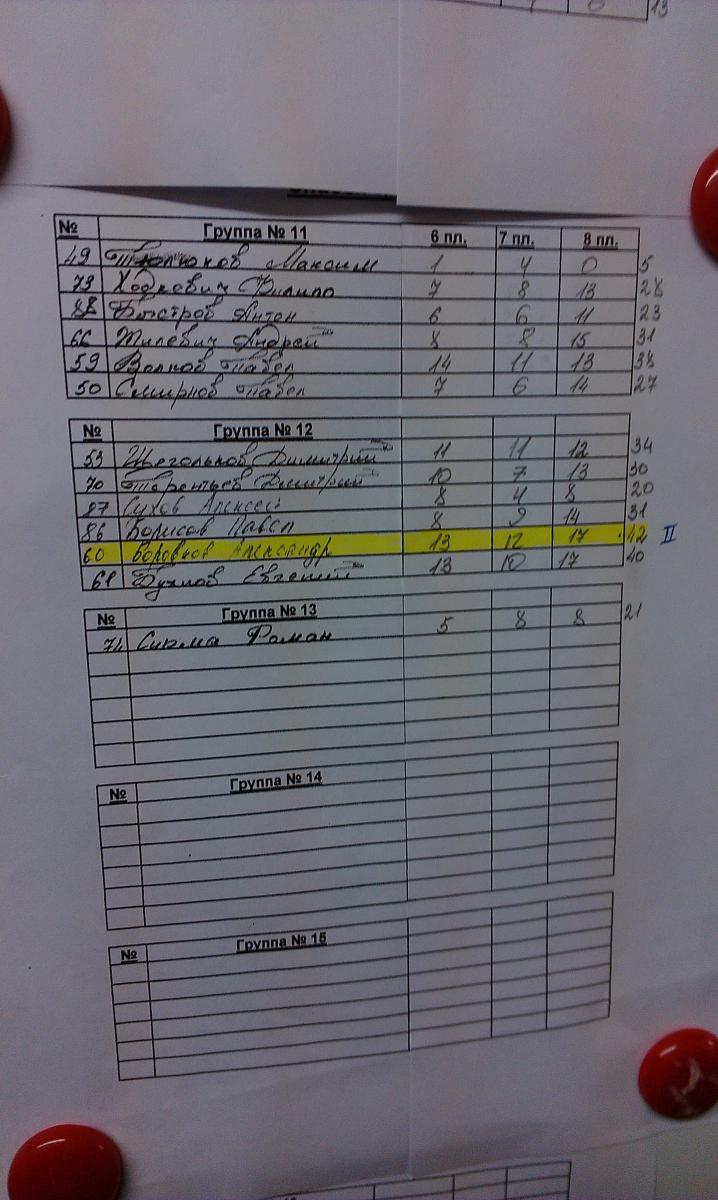 13
№ Группа № 11 6 пл. 7 пл. 8 пл.
49 Максим 1 4 0 5
73 Ходкевич Филипп 7 8 13 28
88 Быстров Антон 6 6 11 23
66 Жилевич Андрей 8 8 15 31
59 Волков Павел 14 11 13 38
50 Смирнов Павел 7 6 14 27
№ Группа № 12
53 Щегольков Димитрий 11 11 12 34
70 Терентьев Дмитрий 10 7 13 30
87 Сухов Алексей 8 4 8 20
86 Борисов Павел 8 9 14 31
60 Боровков Александр 13 12 17 42 II
61 Евгений 13 10 17 40
№ Группа № 13
74 Роман 5 8 8 21
№ Группа № 14
№ Группа № 15